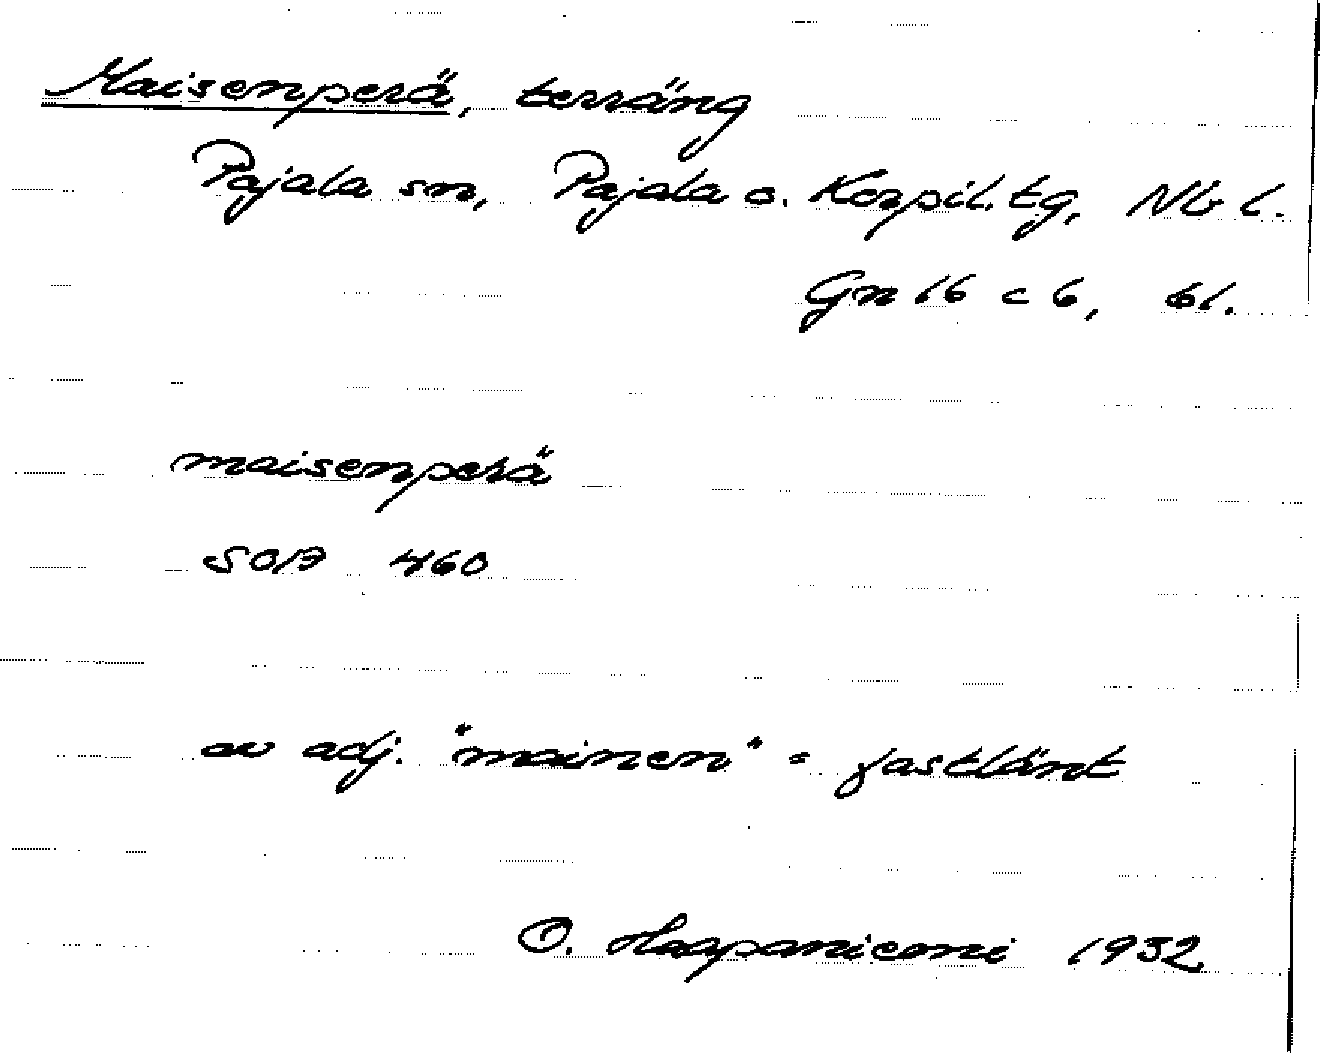 Maisenperä, terräng
Pajala sn, Pajala o. Korpil. tg, Nb l.
Gn 16 c 6, bl.
maisenperä
SOA 460
av adj. "mainen" = fastlänt
O. Haapaniemi 1932